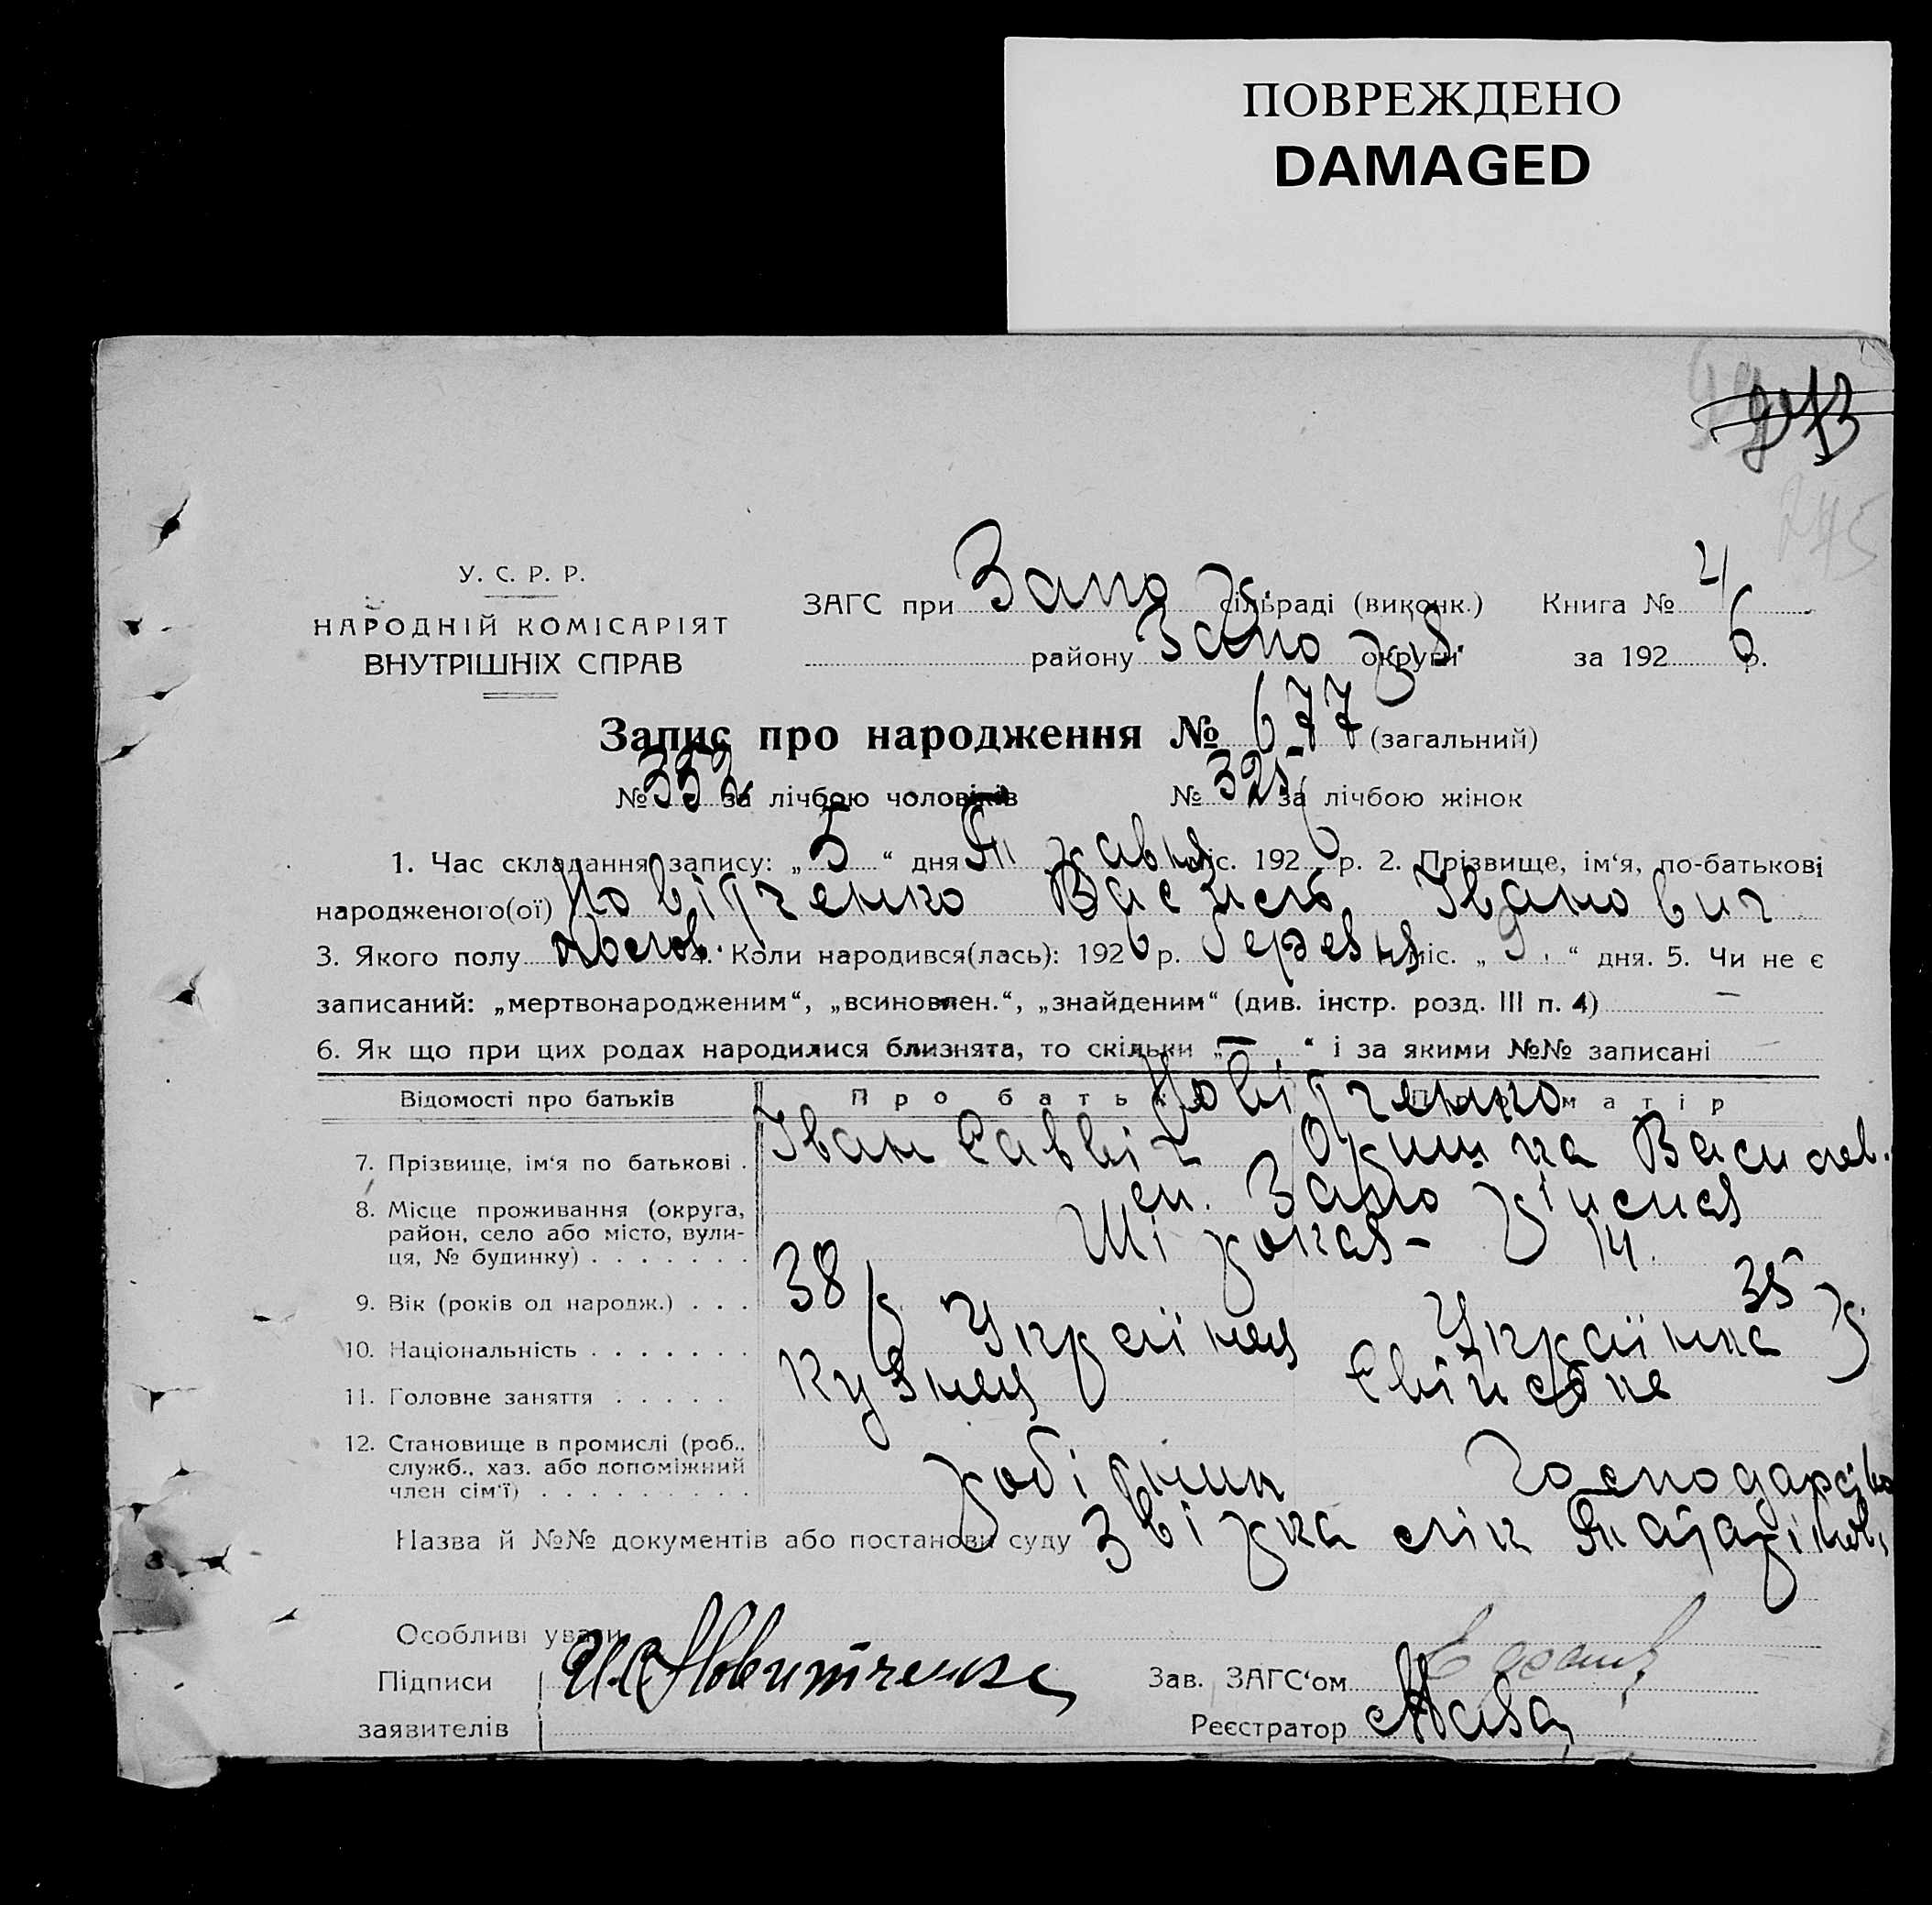 ПОВРЕЖДЕНО
DAMAGED
245
У. С. Р. Р.
НАРОДНІЙ КОМІСАРІЯТ
ВНУТРІШНІХ СПРАВ
ЗАГС при Запо сільраді (виконк.) Книга № 4
району Запо округи за 1926 р.
Запис про народження № 677 (загальний)
№ 352 за лічбою чоловіків № 325 за лічбою жінок
1. Час складання запису: „5“ дня Травня міс. 1926 р. 2. Прізвище, ім‘я, по-батькові
народженого(ої) Новідченко Василь Іванович
3. Якого полу чолов. 4. Коли народився(лась): 1926 р. Березня міс. „9“ дня. 5. Чи не є
записаний: „мертвонародженим“, „всиновлен.“, „знайденим“ (див. інстр. розд. III п. 4) —
6. Як що при цих родах народилися близнята, то скільки „—“ і за якими №№ записані —
Відомості про батьків Про батька Про матір
Новідченко
7. Прізвище, ім‘я по батькові . Іван Саввіч Оришка Васильев.
8. Місце проживання (округа, район, село або місто, вулиця, № будинку) . . . . . . . ст. Запоріжжя
Широкая - 14.
9. Вік (років од народж.) . . . 38 р 35 р
10. Національність . . . . . . . Українец Українка
11. Головне заняття . . . . . Кузнец
12. Становище в промислі (роб., служб., хаз. або допоміжний член сім‘ї) . . . . . . . . . робітник Господарство
Назва й №№ документів або постанови суду Звірка лік
Особливі уваги
Підписи И С Новитченко Зав. ЗАГС‘ом
заявителів Реєстратор